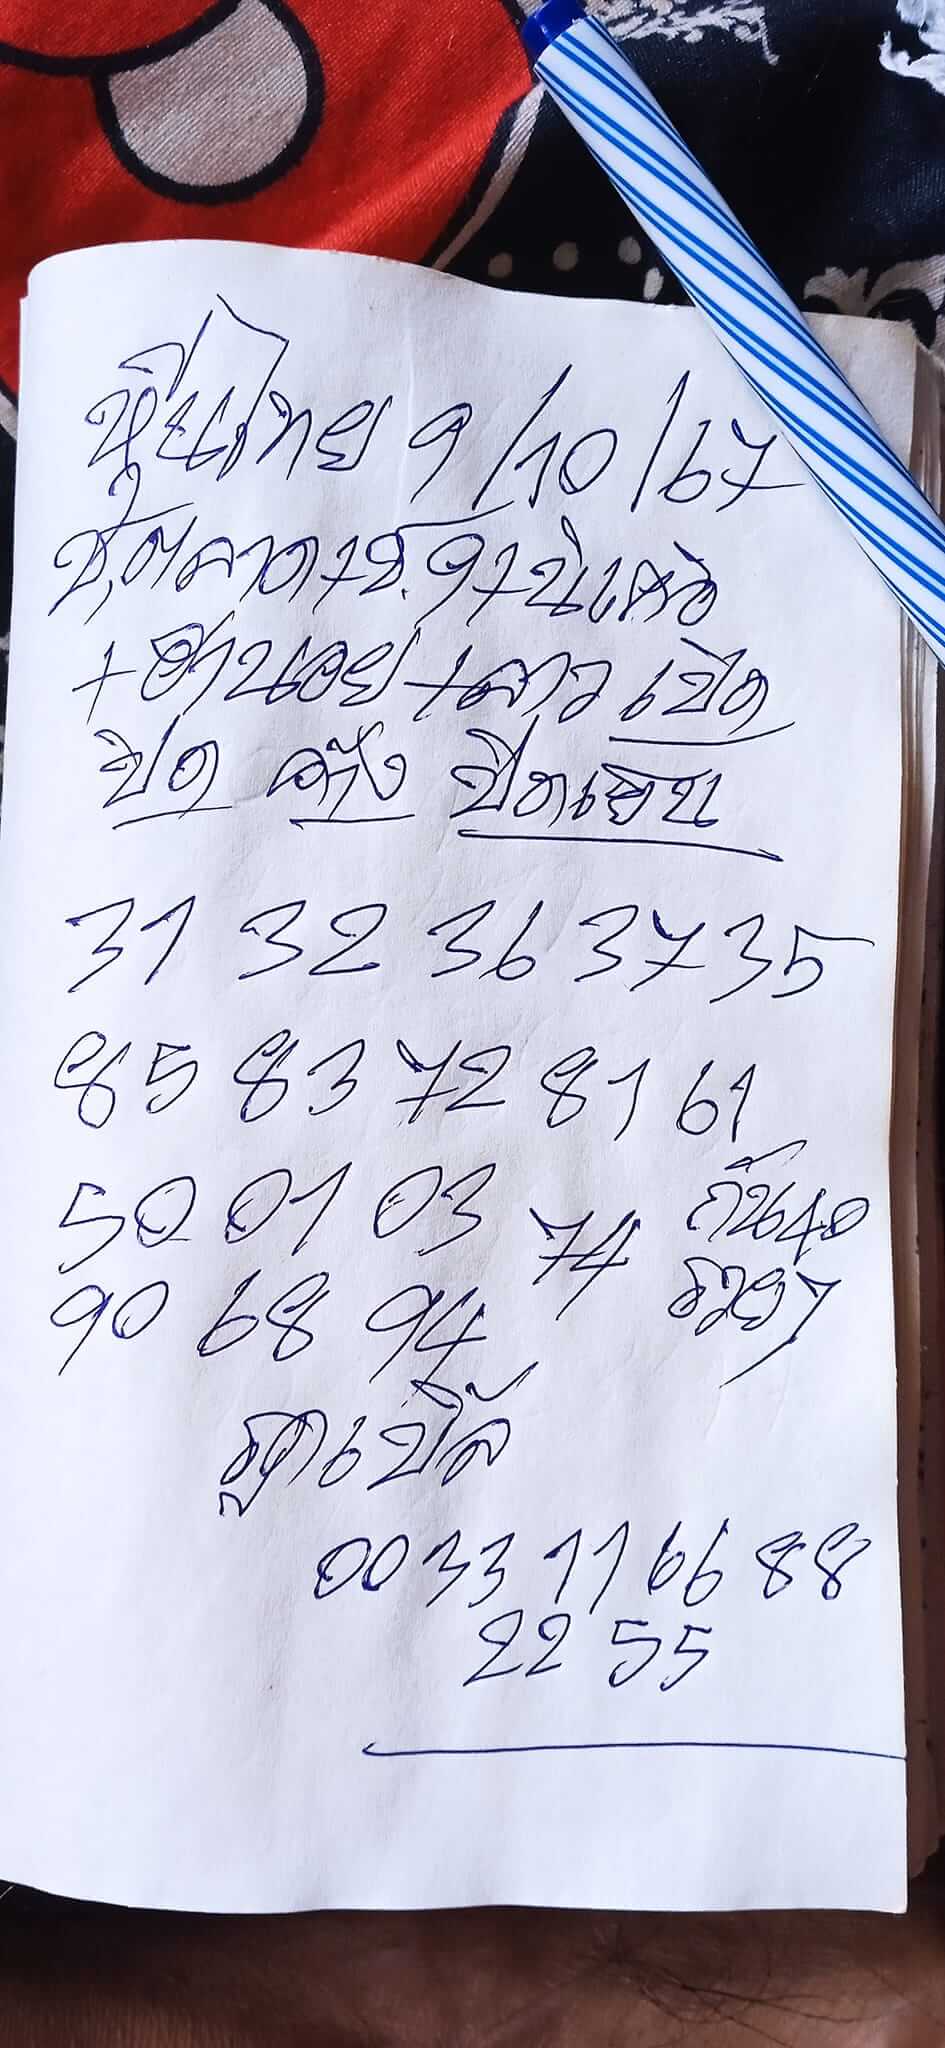 หุ้นไทย 9/10/67
ทุกตลาด+ช.9+นิเคอิ
+ฮานอย+ลาว เปิด
ปิด ครึ่ง ปิดเย็น
31 32 36 37 35
85 83 72 81 61
50 01 03 74 กัน40
90 68 94 รวยๆ
รูดเบิ้ล
00 33 11 66 88
22 55